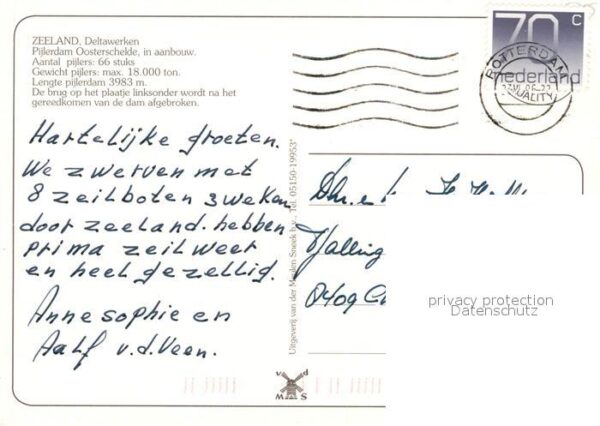 ZEELAND, Deltawerken
Pijlerdam Oosterschelde, in aanbouw.
Aantal pijlers: 66 stuks
Gewicht pijlers: max. 18.000 ton.
Lengte pijlerdam 3983 m.
De brug op het plaatje linksonder wordt na het
gereedkomen van de dam afgebroken.
Hartelijke groeten.
We zwerven met
8 zeilboten 3 weken
door zeeland. hebben
prima zeilweer
en heel gezellig.
Annesophie en
Aalf v.d. Veen.
Uitgeverij van der Meulen Sneek b.v., Tel. 05150-19953*
v d
M S
70 c
nederland
ROTTERDAM
privacy protection
Datenschutz